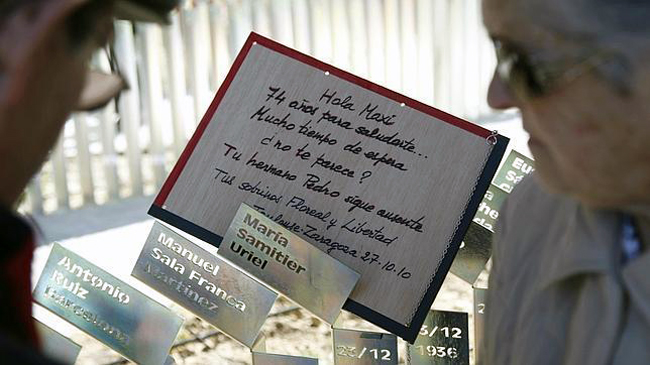 Hola Maxi
74 años para saludarte...
Mucho tiempo de espera
¿no te parece?
Tu hermano Pedro sigue ausente
Tus sobrinos Floreal y Libertad
Toulouse-Zaragoza 27.10.10
María
Samitier
Uriel
Manuel
Sala Franca
Martínez
Antonio
Ruiz
Barcelona
23/12
23/12
1936
Eu